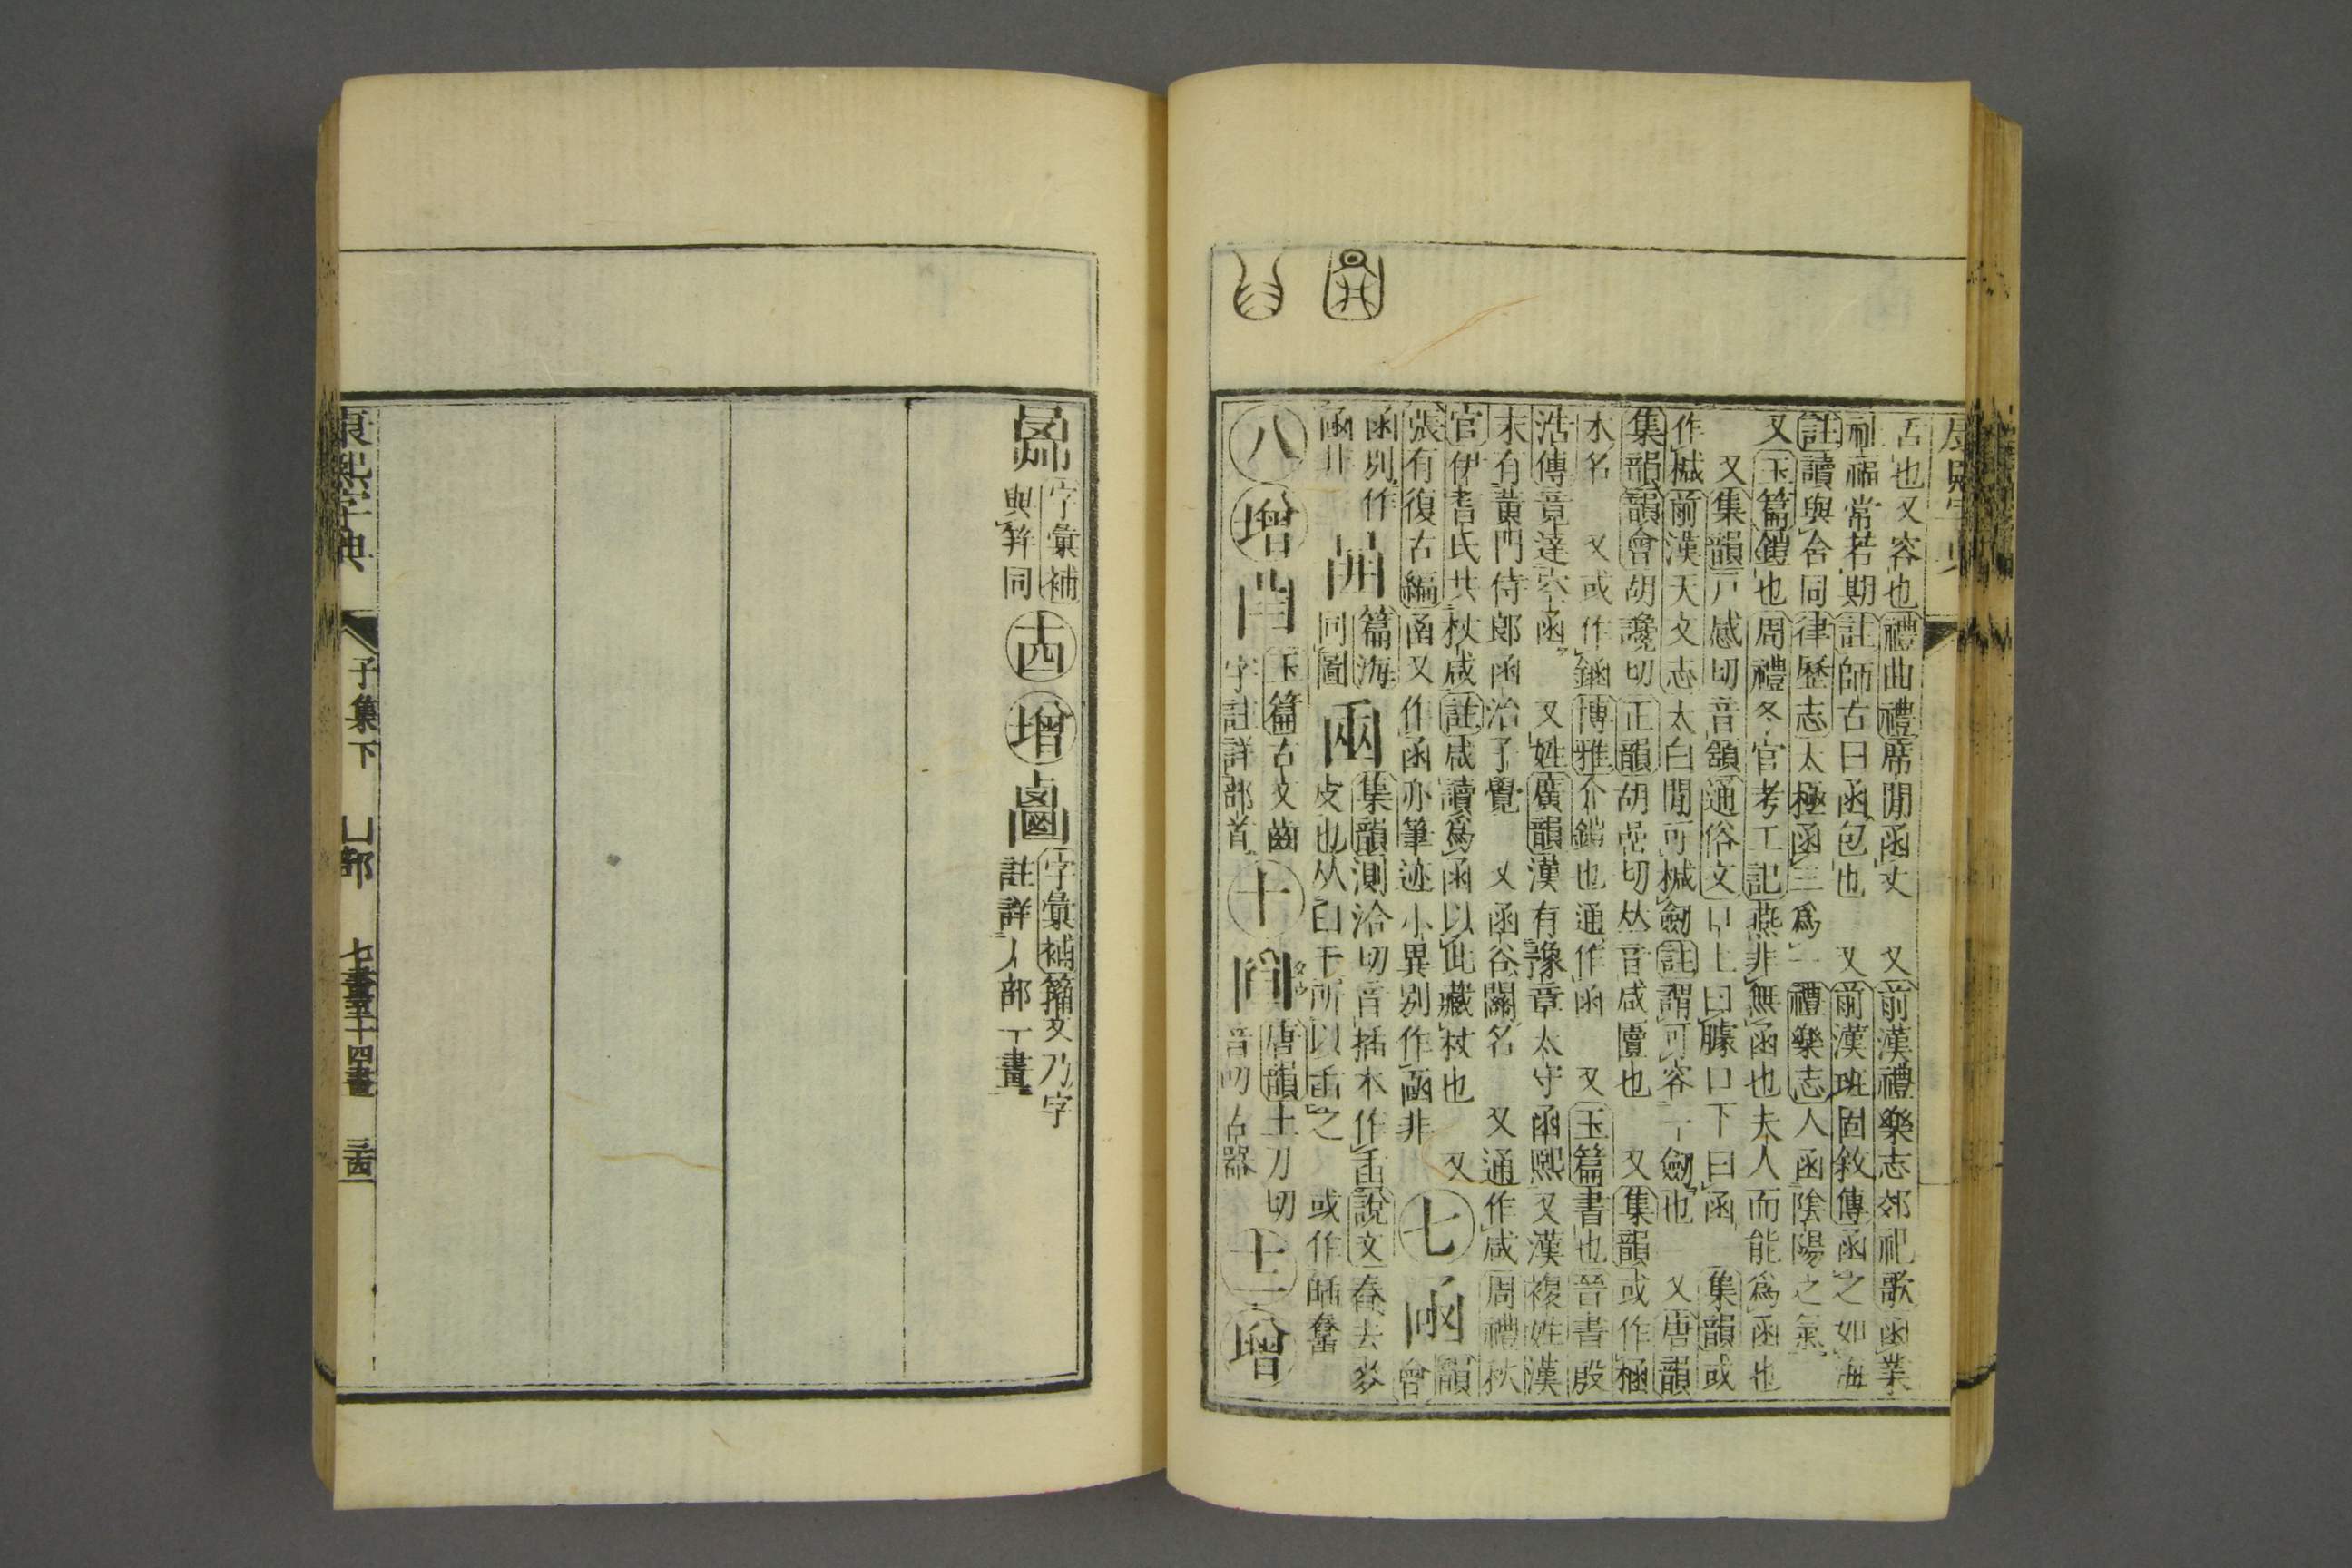 舌也又容也禮曲禮席閒函丈 又前漢禮樂志郊祀歌函蒙
祉福常若期註師古曰函包也 又前漢班固敘傳函之如海
註讀與含同律歷志太極函三爲一禮樂志人函陰陽之氣
又玉篇鎧也周禮冬官考工記燕非無函也夫人而能爲函也
又集韻戸感切音頷通俗文口上曰臄口下曰函 集韻或
作椷前漢天文志太白閒可椷劒註謂可容一劒也 又唐韻
集韻韻會胡讒切正韻胡嵒切𠀤音咸匱也 又集韻或作極
木名 又或作鋡博雅介鎧也通作函 又玉篇書也晉書殷
浩傳竟達空函 又姓廣韻漢有豫章太守函熙又漢複姓漢
末有黃門侍郎函治子覺 又函谷關名 又通作咸周禮秋
官伊耆氏共杖咸註咸讀爲函以此藏杖也 又
張有復古編函又作圅亦筆迹小異別作凾非 七 凾 韻會
函別作
凾非 𠚕 篇海
同圖 𠚏 集韻測洽切音插木作臿說文舂去麥
皮也从臼干所以臿之 或作𤖴𤲬
八 增 玉篇古文齒
字註詳部首 十 唐韻土刀切
音叨古器 十二 增
字彙補
與斝同 十四 增 字彙補籀文乃字
註詳丿部一畫
康熙字典 子集下 凵部 七畫至十四畫 三四